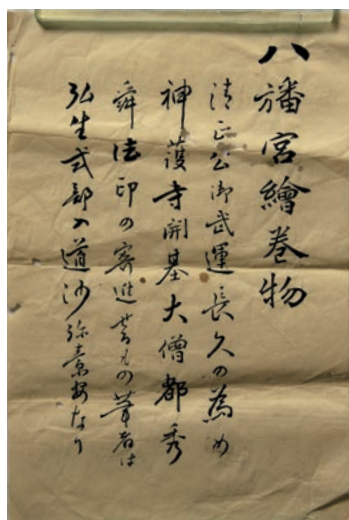 八旛宮繪巻物
清正公御武運長久の為め
神護寺開基大僧都秀
舜法印の寄進せるもの筆者は
弘生式部入道沙弥素安なり